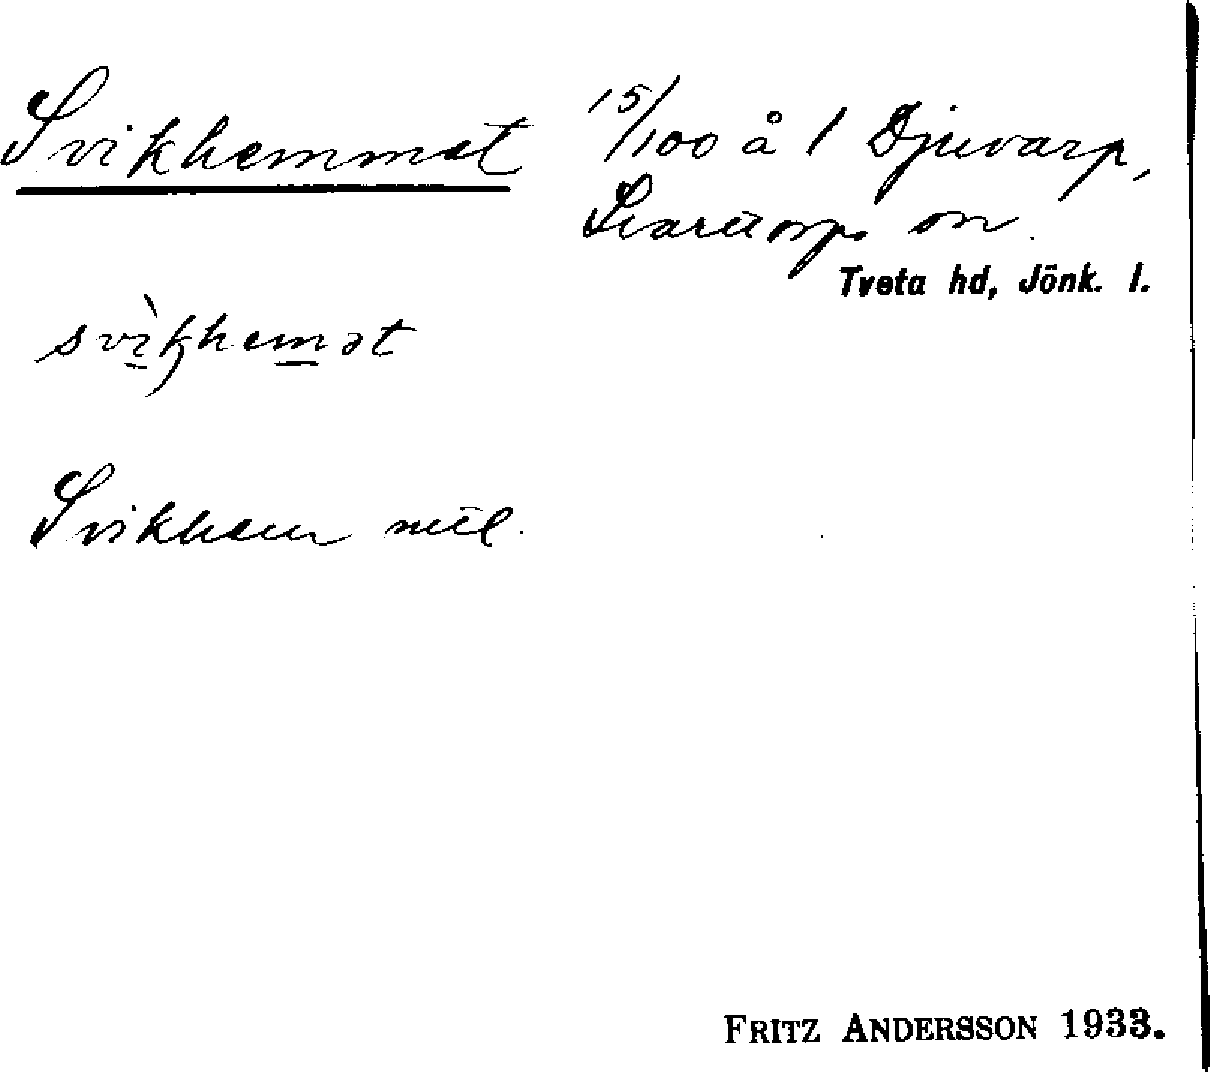 Svikhemmet
15/100 å 1 Djuvarp,
Svarttorps sn.
Tveta hd, Jönk. l.
svìkhemət
Svikhem
FRITZ ANDERSSON 1933.